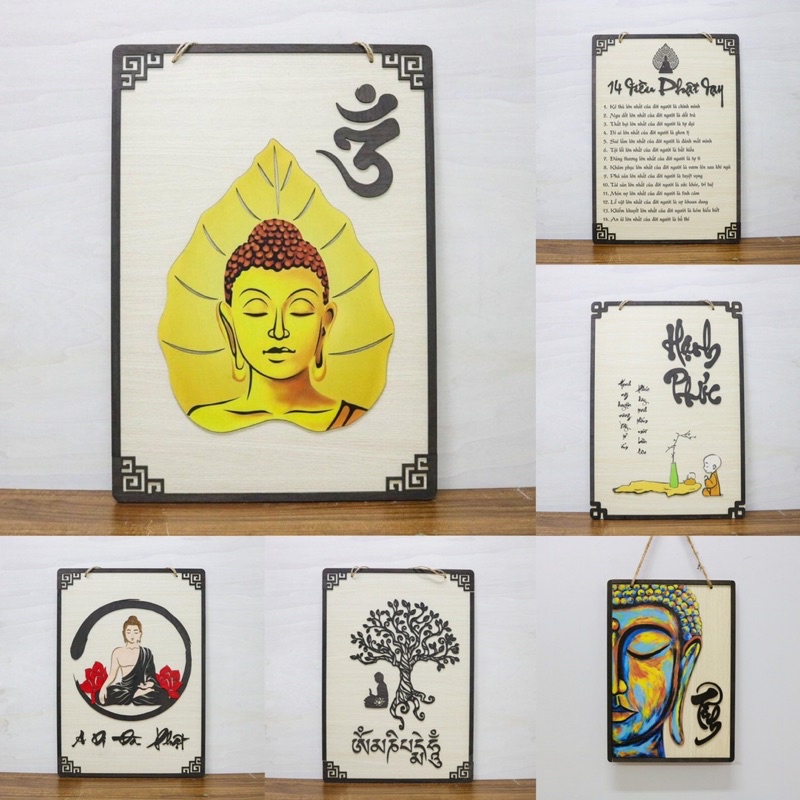 ༀ
14 điều Phật dạy
1. Kẻ thù lớn nhất của đời người là chính mình
2. Ngu dốt lớn nhất của đời người là dối trá
3. Thất bại lớn nhất của đời người là tự đại
4. Bi ai lớn nhất của đời người là ghen tị
5. Sai lầm lớn nhất của đời người là đánh mất mình
6. Tội lỗi lớn nhất của đời người là bất hiếu
7. Đáng thương lớn nhất của đời người là tự ti
8. Khâm phục lớn nhất của đời người là vươn lên sau khi ngã
9. Phá sản lớn nhất của đời người là tuyệt vọng
10. Tài sản lớn nhất của đời người là sức khỏe, trí tuệ
11. Món nợ lớn nhất của đời người là tình cảm
12. Lễ vật lớn nhất của đời người là sự khoan dung
13. Khiếm khuyết lớn nhất của đời người là kém hiểu biết
14. An ủi lớn nhất của đời người là bố thí
Hạnh
Phúc
A Di Đà Phật
ༀམཎིཔདྨེཧཱུྃ